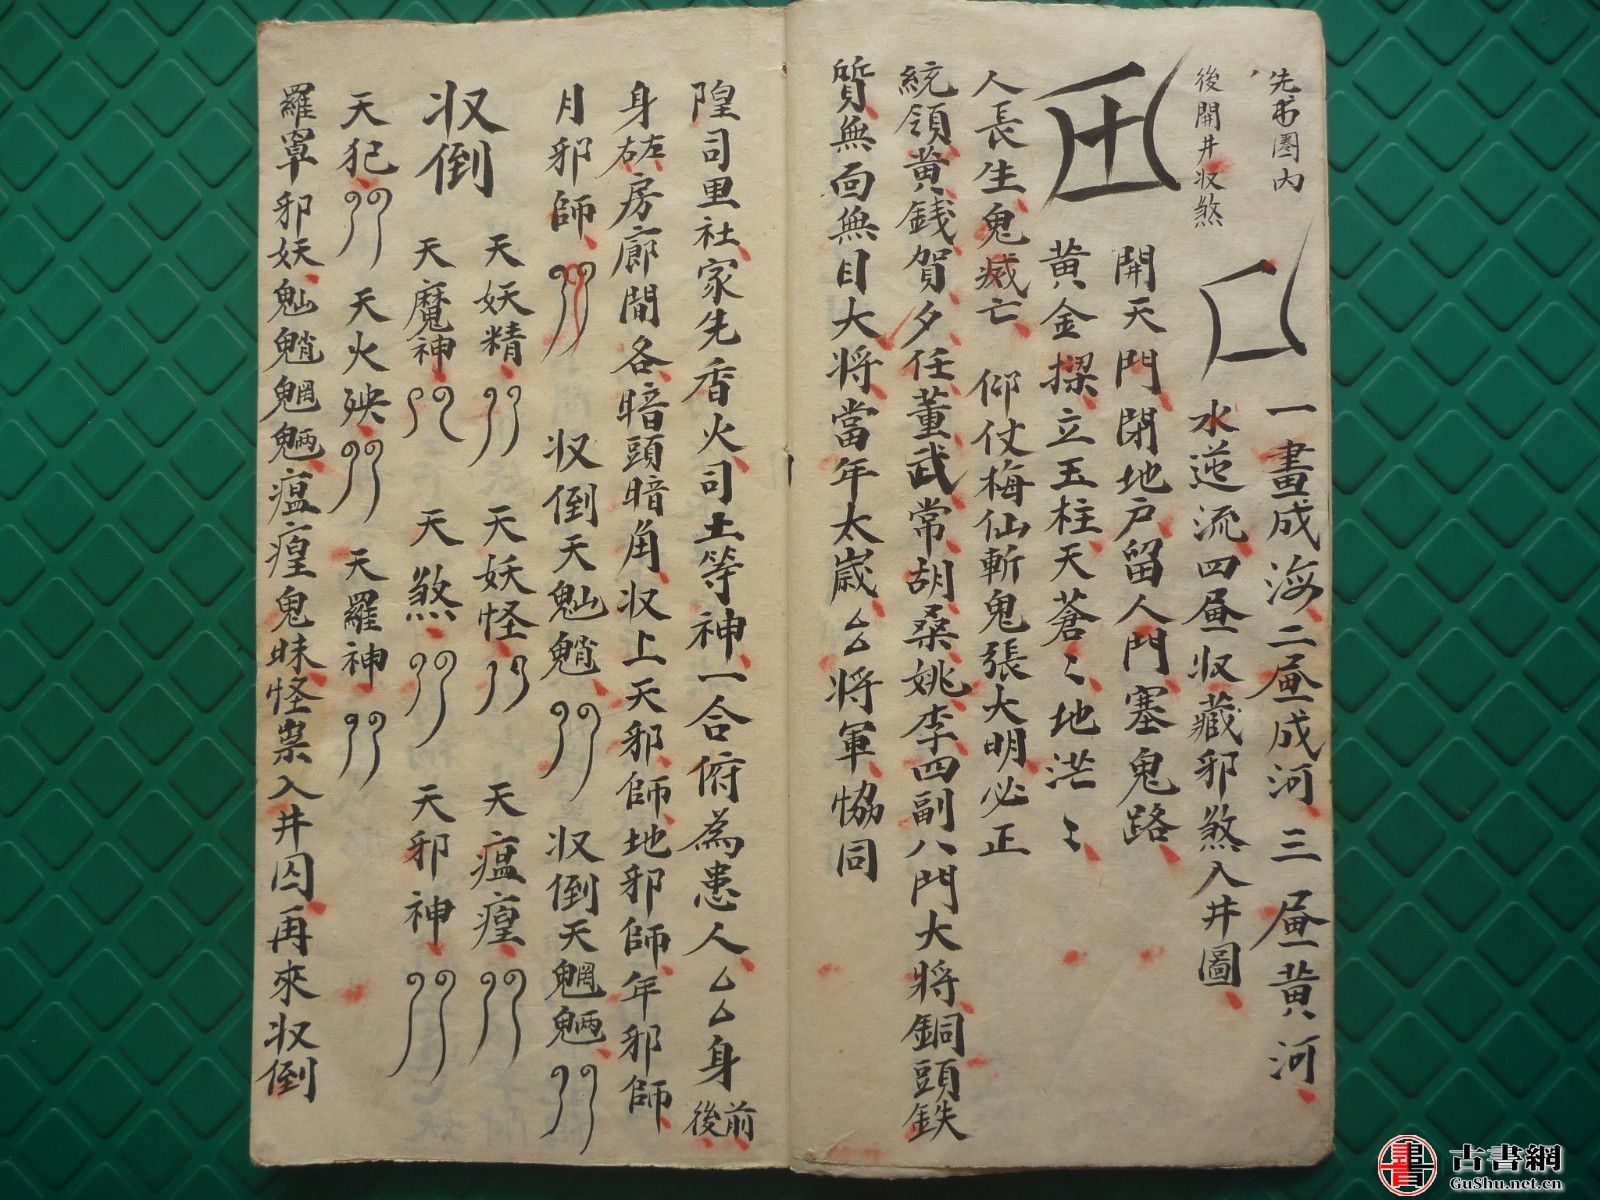 先書圈內
後開井収煞
一畫成海二画成河三画黃河
水逆流四画収藏邪煞入井圖
開天門閉地户留人門塞鬼路
黃金樑立玉柱天蒼〻地茫〻
人長生鬼滅亡 仰仗梅仙斬鬼張大明必正
統領黃錢賀夕任董武常胡桑姚李四副八門大將銅頭鉄
質無面無目大將當年太歲厶厶將軍恊同
隍司里社家先香火司土等神一合俯為患人厶厶身前後
身左右房廊間各暗頭暗角収上天邪師地邪師年邪師
月邪師 収倒天魈 収倒天魍魎
天妖精 天妖怪 天瘟㾮
収倒
天魔神 天煞 天邪神
天犯 天火殃 天羅神
羅罩邪妖魈魍魎瘟㾮鬼昧怪祟入井囚再來収倒
古書網
GuShu.net.cn